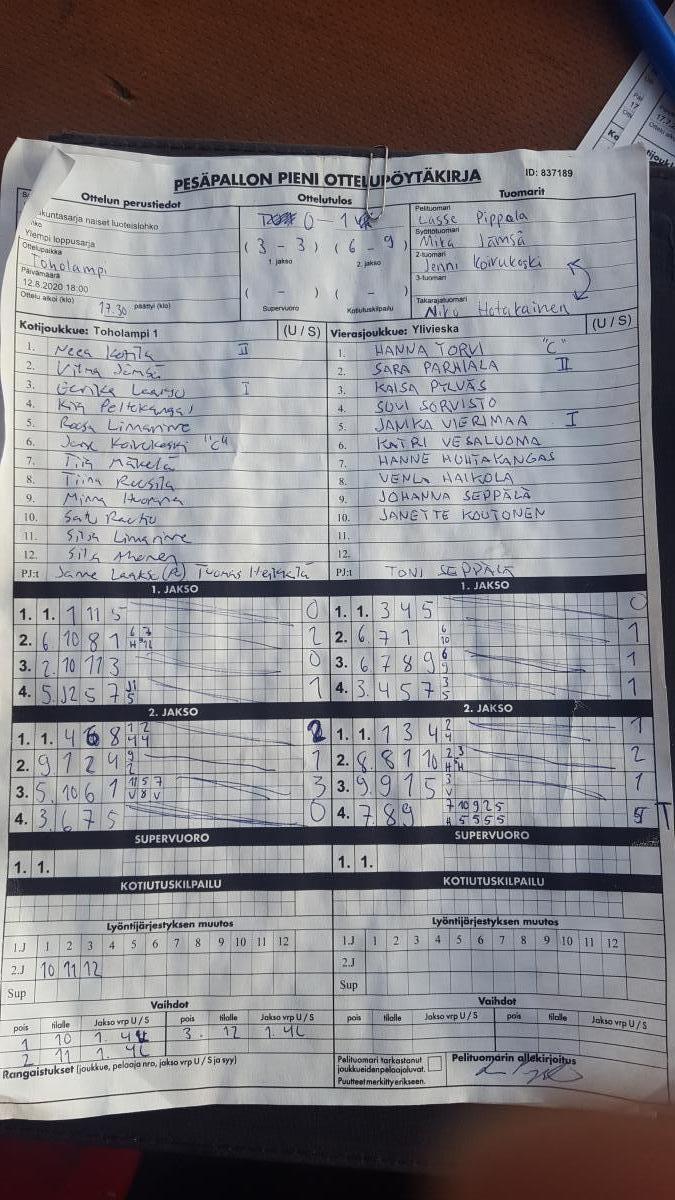 PESÄPALLON PIENI OTTELUPÖYTÄKIRJA
ID: 837189
Ottelun perustiedot
akuntasarja naiset luoteislohko
Ylempi loppusarja
Ottelupaikka
Toholampi
Päivämäärä
12.8.2020 18:00
Ottelu alkoi (klo) 17.30 päättyi (klo)
Ottelutulos
0-1
( 3 - 3 ) ( 6 - 9 )
1. jakso 2. jakso
( - ) ( - )
Supervuoro Kotiutuskilpailu
Tuomarit
Pelituomari
Lasse Pippola
Syöttötuomari
Mika Jämsä
2-tuomari
Jenni Koivukoski
3-tuomari
Takarajatuomari
Niku Hotakainen
Kotijoukkue: Toholampi 1 (U / S)
1. Neea Kotila II
2. Vilma Jämsä
3. Eerika Laakso I
4. Kira Peltokangas
5. Roosa Limnarinne
6. Jane Koivukoski "C"
7. Tiia Mäkelä
8. Tiina Ruusila
9. Minna Huopana
10. Satu Rautio
11. Silja Limarinne
12. Silja Ahonen
PJ:t Janne Laakso (R) Tuomas Heikkilä
Vierasjoukkue: Ylivieska (U / S)
1. HANNA TORVI "C"
2. SARA PARHIALA II
3. KAISA PYLVÄS
4. SUVI SORVISTO
5. JANIKA VIERIMAA I
6. KATRI VESALUOMA
7. HANNE HUHTAKANGAS
8. VENLA HAIKOLA
9. JOHANNA SEPPÄLÄ
10. JANETTE KOUTONEN
11.
12.
PJ:t TONI SEPPÄLÄ
1. JAKSO
1. 1. 1 11 5 0
2. 6 10 8 1 2
3. 2. 10 11 3 0
4. 5. 12 5 7 1
1. JAKSO
1. 1. 3 4 5 0
2. 6. 7 1 6 10 1
3. 6 7 8 9 6 9 1
4. 3. 4 5 7 3 5 1
2. JAKSO
1. 1. 4 6 8 1 2 4 4 2
2. 9 1 2 4 9 2 1
3. 5. 10 6 1 11 5 7 V 8 V 3
4. 3. 6 7 5 0
2. JAKSO
1. 1. 1 3 4 2 4 1
2. 8. 8 1 10 2 3 H H 2
3. 9. 9 1 5 3 V 1
4. 7 8 9 7 10 9 2 5 4 5 5 5 5 5 T
SUPERVUORO
1. 1.
SUPERVUORO
1. 1.
KOTIUTUSKILPAILU
KOTIUTUSKILPAILU
Lyöntijärjestyksen muutos
1.J 1 2 3 4 5 6 7 8 9 10 11 12
2.J 10 11 12
Sup
Lyöntijärjestyksen muutos
1.J 1 2 3 4 5 6 7 8 9 10 11 12
2.J
Sup
Vaihdot
pois tilalle Jakso vrp U / S pois tilalle Jakso vrp U / S
1 10 1. 4U 3. 12 1. 4U
2 11 1. 4U
Rangaistukset (joukkue, pelaaja nro, jakso vrp U / S ja syy)
Vaihdot
pois tilalle Jakso vrp U / S pois tilalle Jakso vrp U / S
Pelituomari tarkastanut
joukkueiden pelaajaluvat.
Puutteet merkitty erikseen.
Pelituomarin allekirjoitus